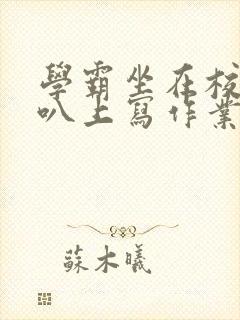 學霸坐在校
叭上寫作業
蘇木曦